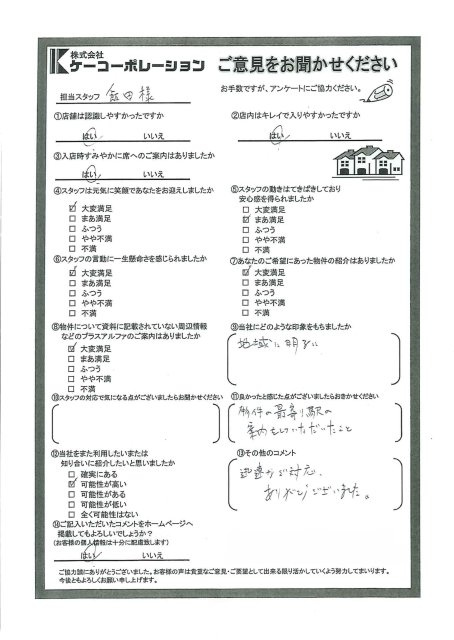 株式会社
ケーコーポレーション
ご意見をお聞かせください
担当スタッフ 飯田様
お手数ですが、アンケートにご協力ください。
①店舗は認識しやすかったですか
はい いいえ
②店内はキレイで入りやすかったですか
はい いいえ
③入店時すみやかに席へのご案内はありましたか
はい いいえ
④スタッフは元気に笑顔であなたをお迎えしましたか
☑ 大変満足
□ まあ満足
□ ふつう
□ やや不満
□ 不満
⑤スタッフの動きはてきぱきしており
安心感を得られましたか
□ 大変満足
☑ まあ満足
□ ふつう
□ やや不満
□ 不満
⑥スタッフの言動に一生懸命さを感じられましたか
☑ 大変満足
□ まあ満足
□ ふつう
□ やや不満
□ 不満
⑦あなたのご希望にあった物件の紹介はありましたか
☑ 大変満足
□ まあ満足
□ ふつう
□ やや不満
□ 不満
⑧物件について資料に記載されていない周辺情報
などのプラスアルファのご案内はありましたか
☑ 大変満足
□ まあ満足
□ ふつう
□ やや不満
□ 不満
⑨当社にどのような印象をもちましたか
地域に明るい
⑩スタッフの対応で気になる点がございましたらお聞かせください
⑪良かったと感じた点がございましたらおきかせください
物件の最寄り駅の
案内もしていただいたこと
⑫当社をまた利用したいまたは
知り合いに紹介したいと思いましたか
□ 確実にある
☑ 可能性が高い
□ 可能性がある
□ 可能性が低い
□ 全く可能性はない
⑬その他のコメント
迅速なご対応、
ありがとうございました。
⑭ご記入いただいたコメントをホームページへ
掲載してもよろしいでしょうか?
(お客様の個人情報は十分に配慮致します)
はい いいえ
ご協力誠にありがとうございました。お客様の声は貴重なご意見・ご要望として出来る限り活かしていくよう努力してまいります。
今後ともよろしくお願い申し上げます。